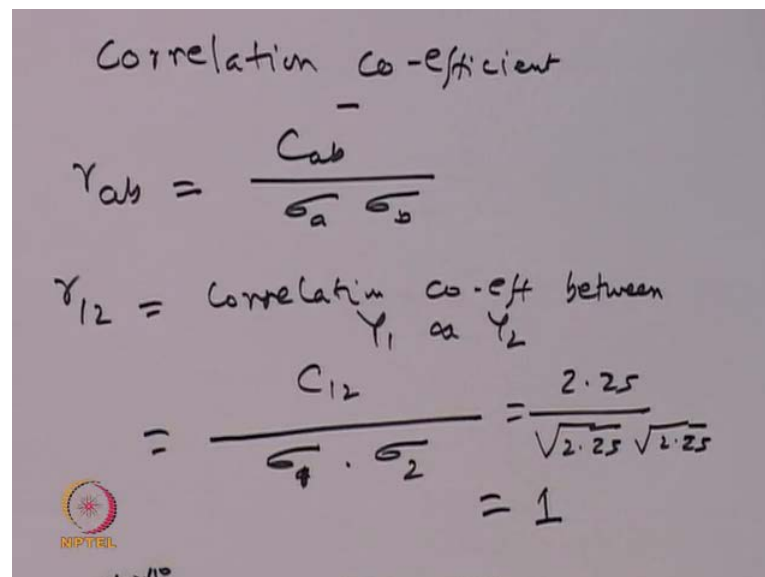 Correlation co-efficient
r_ab = C_ab / σ_a σ_b
r_12 = correlation co-eff between
Y_1 & Y_2
= C_12 / σ_1 . σ_2 = 2.25 / √2.25 √2.25
= 1
NPTEL